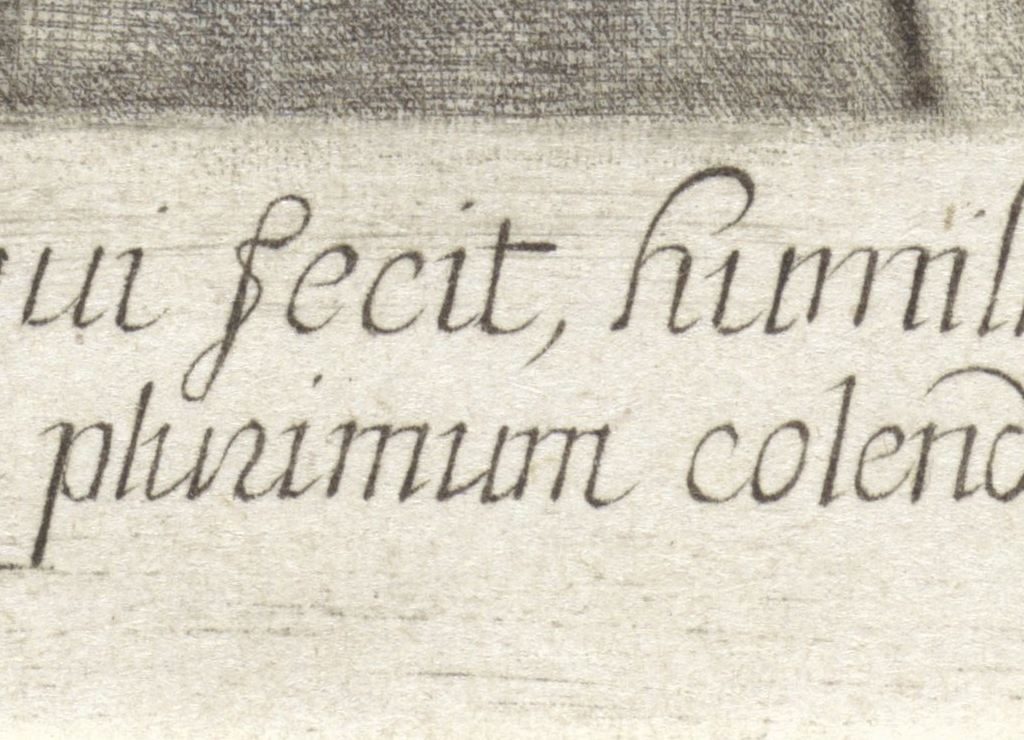 ui fecit, humil
plurimum colend